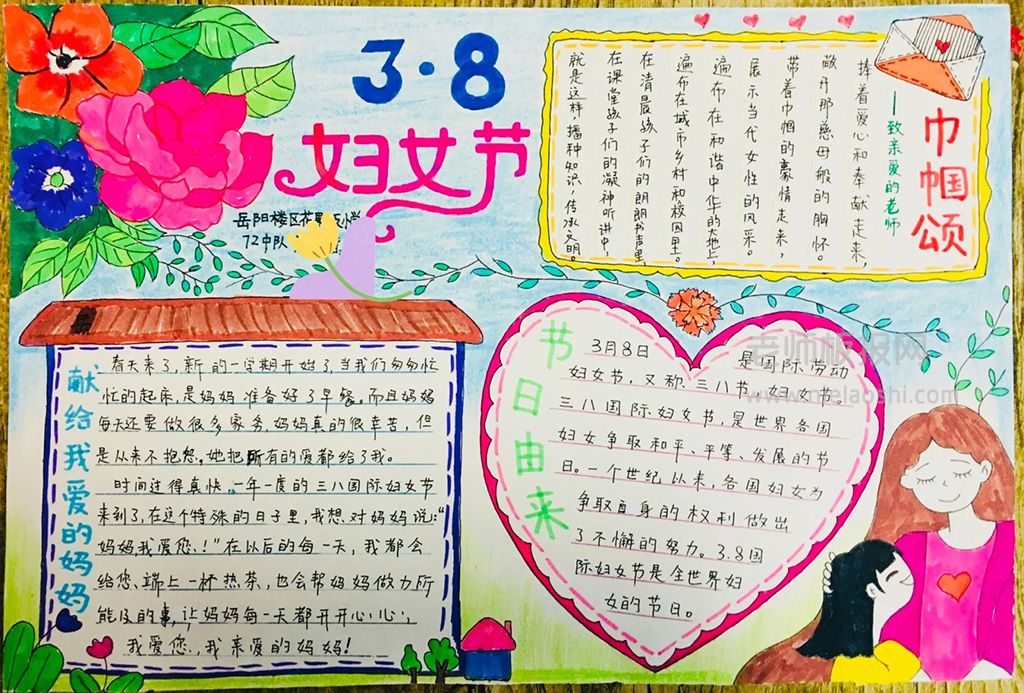 3·8
妇女节
岳阳楼区
72中队
巾帼颂
——致亲爱的老师
捧着爱心和奉献走来,
敞开那慈母般的胸怀。
带着巾帼的豪情走来,
展示当代女性的风采。
遍布在和谐中华的大地上,
遍布在城市乡村和校园里。
在清晨孩子们的朗朗书声里,
在课堂孩子们的凝神听讲中,
就是这样播种知识传承文明。
献给我爱的妈妈
春天来了,新的一学期开始了,当我们匆匆忙
忙的起床,是妈妈准备好了早餐。而且妈妈
每天还要做很多家务,妈妈真的很辛苦,但
是从来不抱怨。她把所有的爱都给了我。
时间过得真快,一年一度的三八国际妇女节
来到了,在这个特殊的日子里,我想对妈妈说:“
妈妈,我爱您!”在以后的每一天,我都会
给您端上一杯热茶,也会帮妈妈做力所
能及的事,让妈妈每一天都开开心心;
我爱您,我亲爱的妈妈!
节日由来
3月8日 是国际劳动
妇女节,又称三八节,妇女节。
三八国际妇女节,是世界各国
妇女争取和平、平等、发展的节
日。一个世纪以来,各国妇女为
争取自身的权利做出
了不懈的努力。3.8国
际妇女节是全世界妇
女的节日。
老师板报网